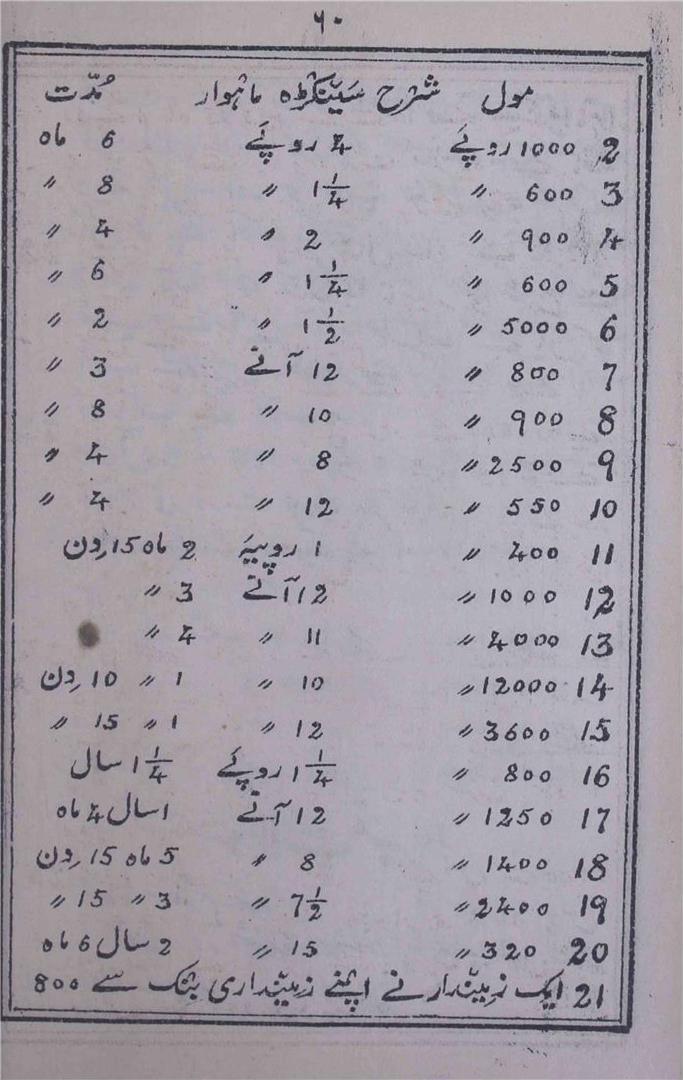 ۶۰
مول شرح سینکڑہ ماہوار مُدّت
2 1000 روپَے 4 روپَے 6 ماہ
3 600 〃 1 1/4 〃 8 〃
4 900 〃 2 〃 4 〃
5 600 〃 1 1/4 〃 6 〃
6 5000 〃 1 1/2 〃 2 〃
7 800 〃 12 آنے 3 〃
8 900 〃 10 〃 8 〃
9 2500 〃 8 〃 4 〃
10 550 〃 12 〃 4 〃
11 400 〃 1 روپیہَ 2 ماہ 15 دِن
12 1000 〃 12 آنے 3 〃
13 4000 〃 11 〃 4 〃
14 12000 〃 10 〃 1 〃 10 دِن
15 3600 〃 12 〃 1 〃 15 〃
16 800 〃 1 1/4 روپَے 1 1/4 سال
17 1250 〃 12 آنے 1 سال 4 ماہ
18 1400 〃 8 〃 5 ماہ 15 دِن
19 2400 〃 7 1/2 〃 3 〃 15 〃
20 320 〃 15 〃 2 سال 6 ماہ
21 ایک زمیندار نے اپنے زمینداری بنک سے 800